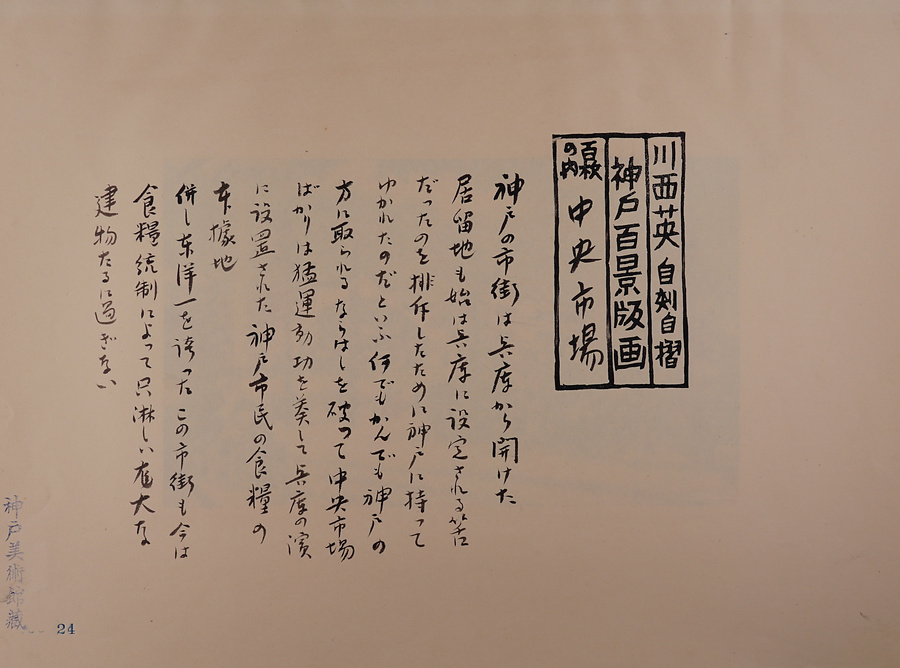 川西英 自刻自摺
神戸百景版画
百枚の内 中央市場
神戸の市街は兵庫から開けた
居留地も始は兵庫に設定される筈
だったのを排斥したために神戸に持って
ゆかれたのだといふ何でもかんでも神戸の
方に取られるならはしを破って中央市場
ばかりは猛運動功を奏して兵庫の濱
に設置された神戸市民の食糧の
本據地
併し東洋一を誇ったこの市街も今は
食糧統制によって只淋しい厖大な
建物たるに過ぎない
神戸美術館藏
24